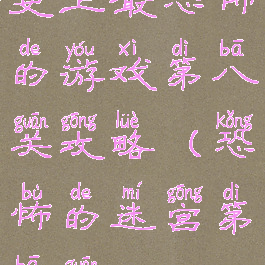 de yóu xì dì bā
的游戏第八
guān gōng lüè kǒng
关攻略（恐
bù de mí gōng dì
怖的迷宫第
bā guān